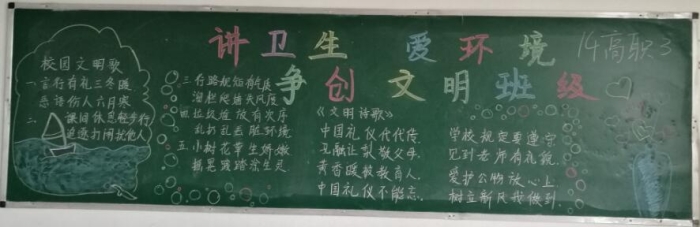 讲卫生 爱环境
争创文明班级
14高职3
校园文明歌
一、言行有礼三冬暖
恶语伤人六月寒
二、课间休息轻步行
追逐打闹扰他人
三、行路规矩有
四、垃圾道放有次序
乱扔乱丢脏环境
五、小树花草生娇嫩
《文明诗歌》
中国礼仪代代传
孔融让梨敬父母
黄香暖被教育人
中国礼仪不能忘
学校规定要遵守
见到老师有礼貌
爱护公物放心上
树立新风我做到